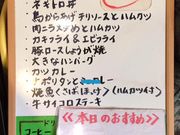 ・ネギトロ丼
・鳥からあげチリソースとハムカツ
・肉ニラ炒めとハムカツ
・カキフライ&エビフライ
・豚ロースしょうが焼
・大きなハンバーグ
・カツカレー
・ナポリタンと
・焼魚<さば、ほっけ>(ハムカツ付)
・牛サイコロステーキ
≪本日のおすすめ≫
ドリ
コーヒー